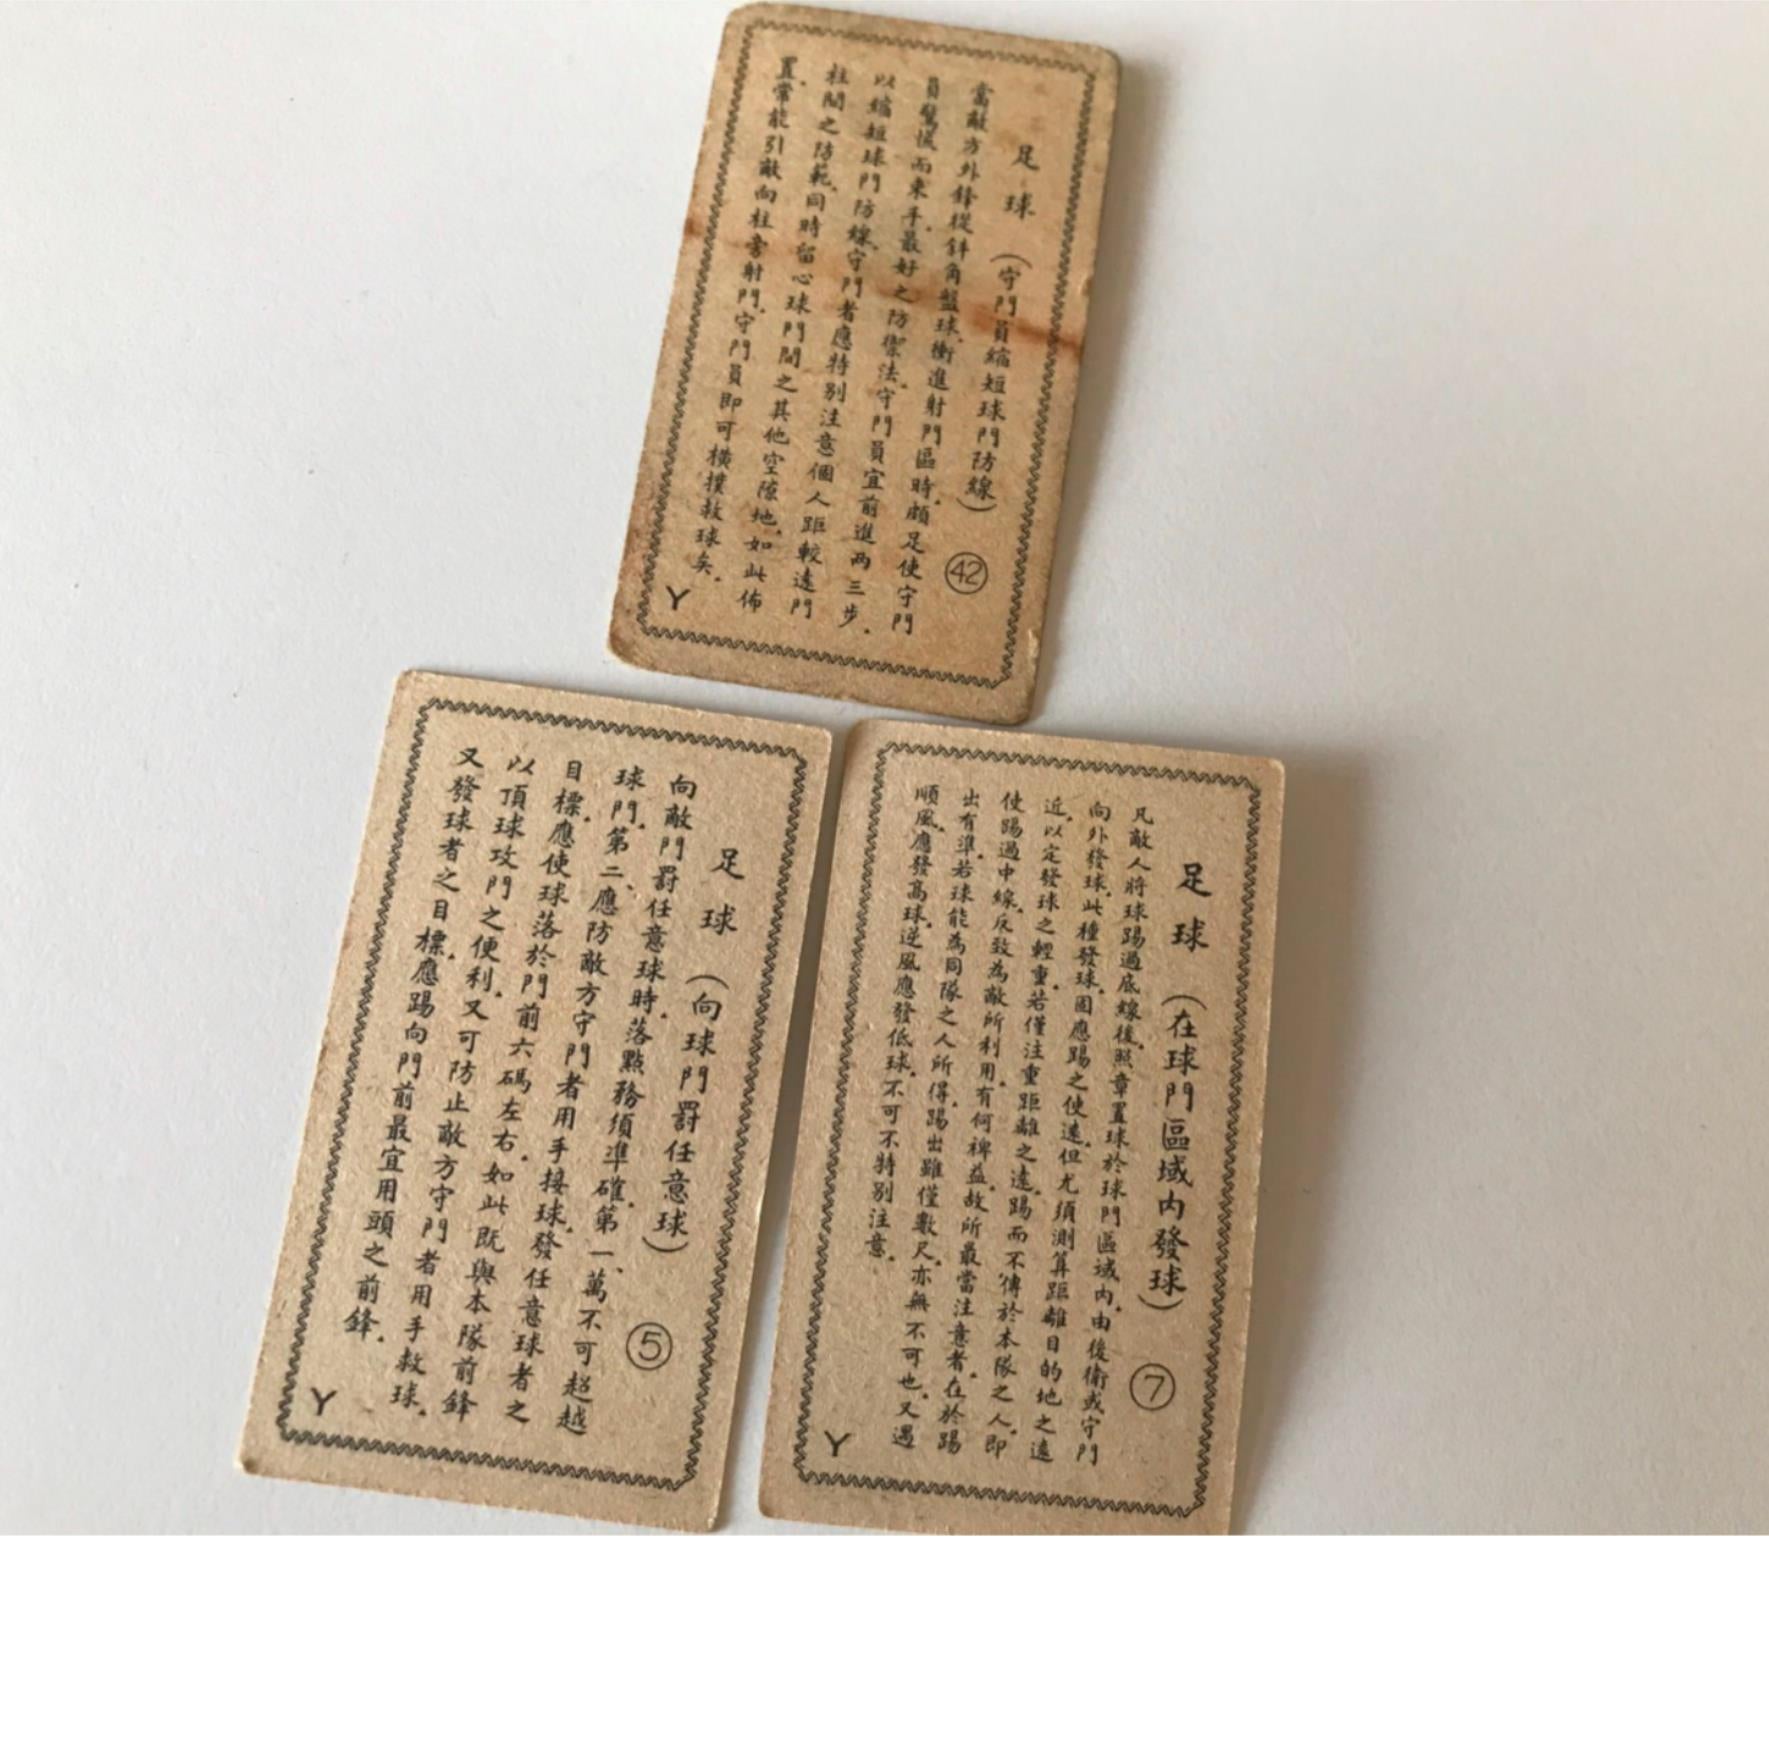 足球（守門員縮短球門防線）
42
當敵方外鋒從斜角盤球，衝進射門區時，頗足使守門
員驚慌而束手，最好之防禦法，守門員宜前進兩三步，
以縮短球門防線，守門者應特別注意個人距較遠門
柱間之防範，同時留心球門間之其他空隙地，如此佈
置，常能引敵向柱旁射門，守門員即可橫撲救球矣。
Y
足球（向球門罰任意球）
5
向敵門罰任意球時，落點務須準確，第一、萬不可超越
球門，第二、應防敵方守門者用手接球，發任意球者之
目標，應使球落於門前六碼左右，如此既與本隊前鋒
以頂球攻門之便利，又可防止敵方守門者用手救球，
又發球者之目標，應踢向門前最宜用頭之前鋒。
Y
足球（在球門區域內發球）
7
凡敵人將球踢過底線後，照章置球於球門區域內，由後衛或守門
向外發球，此種發球，固應踢之使遠，但尤須測算距離目的地之遠
近，以定發球之輕重，若僅注重距離之遠，踢而不傳於本隊之人，即
使踢過中線，反致為敵所利用，有何裨益，故所最當注意者，在於踢
出有準，若球能為同隊之人所得，踢出雖僅數尺，亦無不可也，又遇
順風，應發高球，逆風應發低球，不可不特別注意。
Y